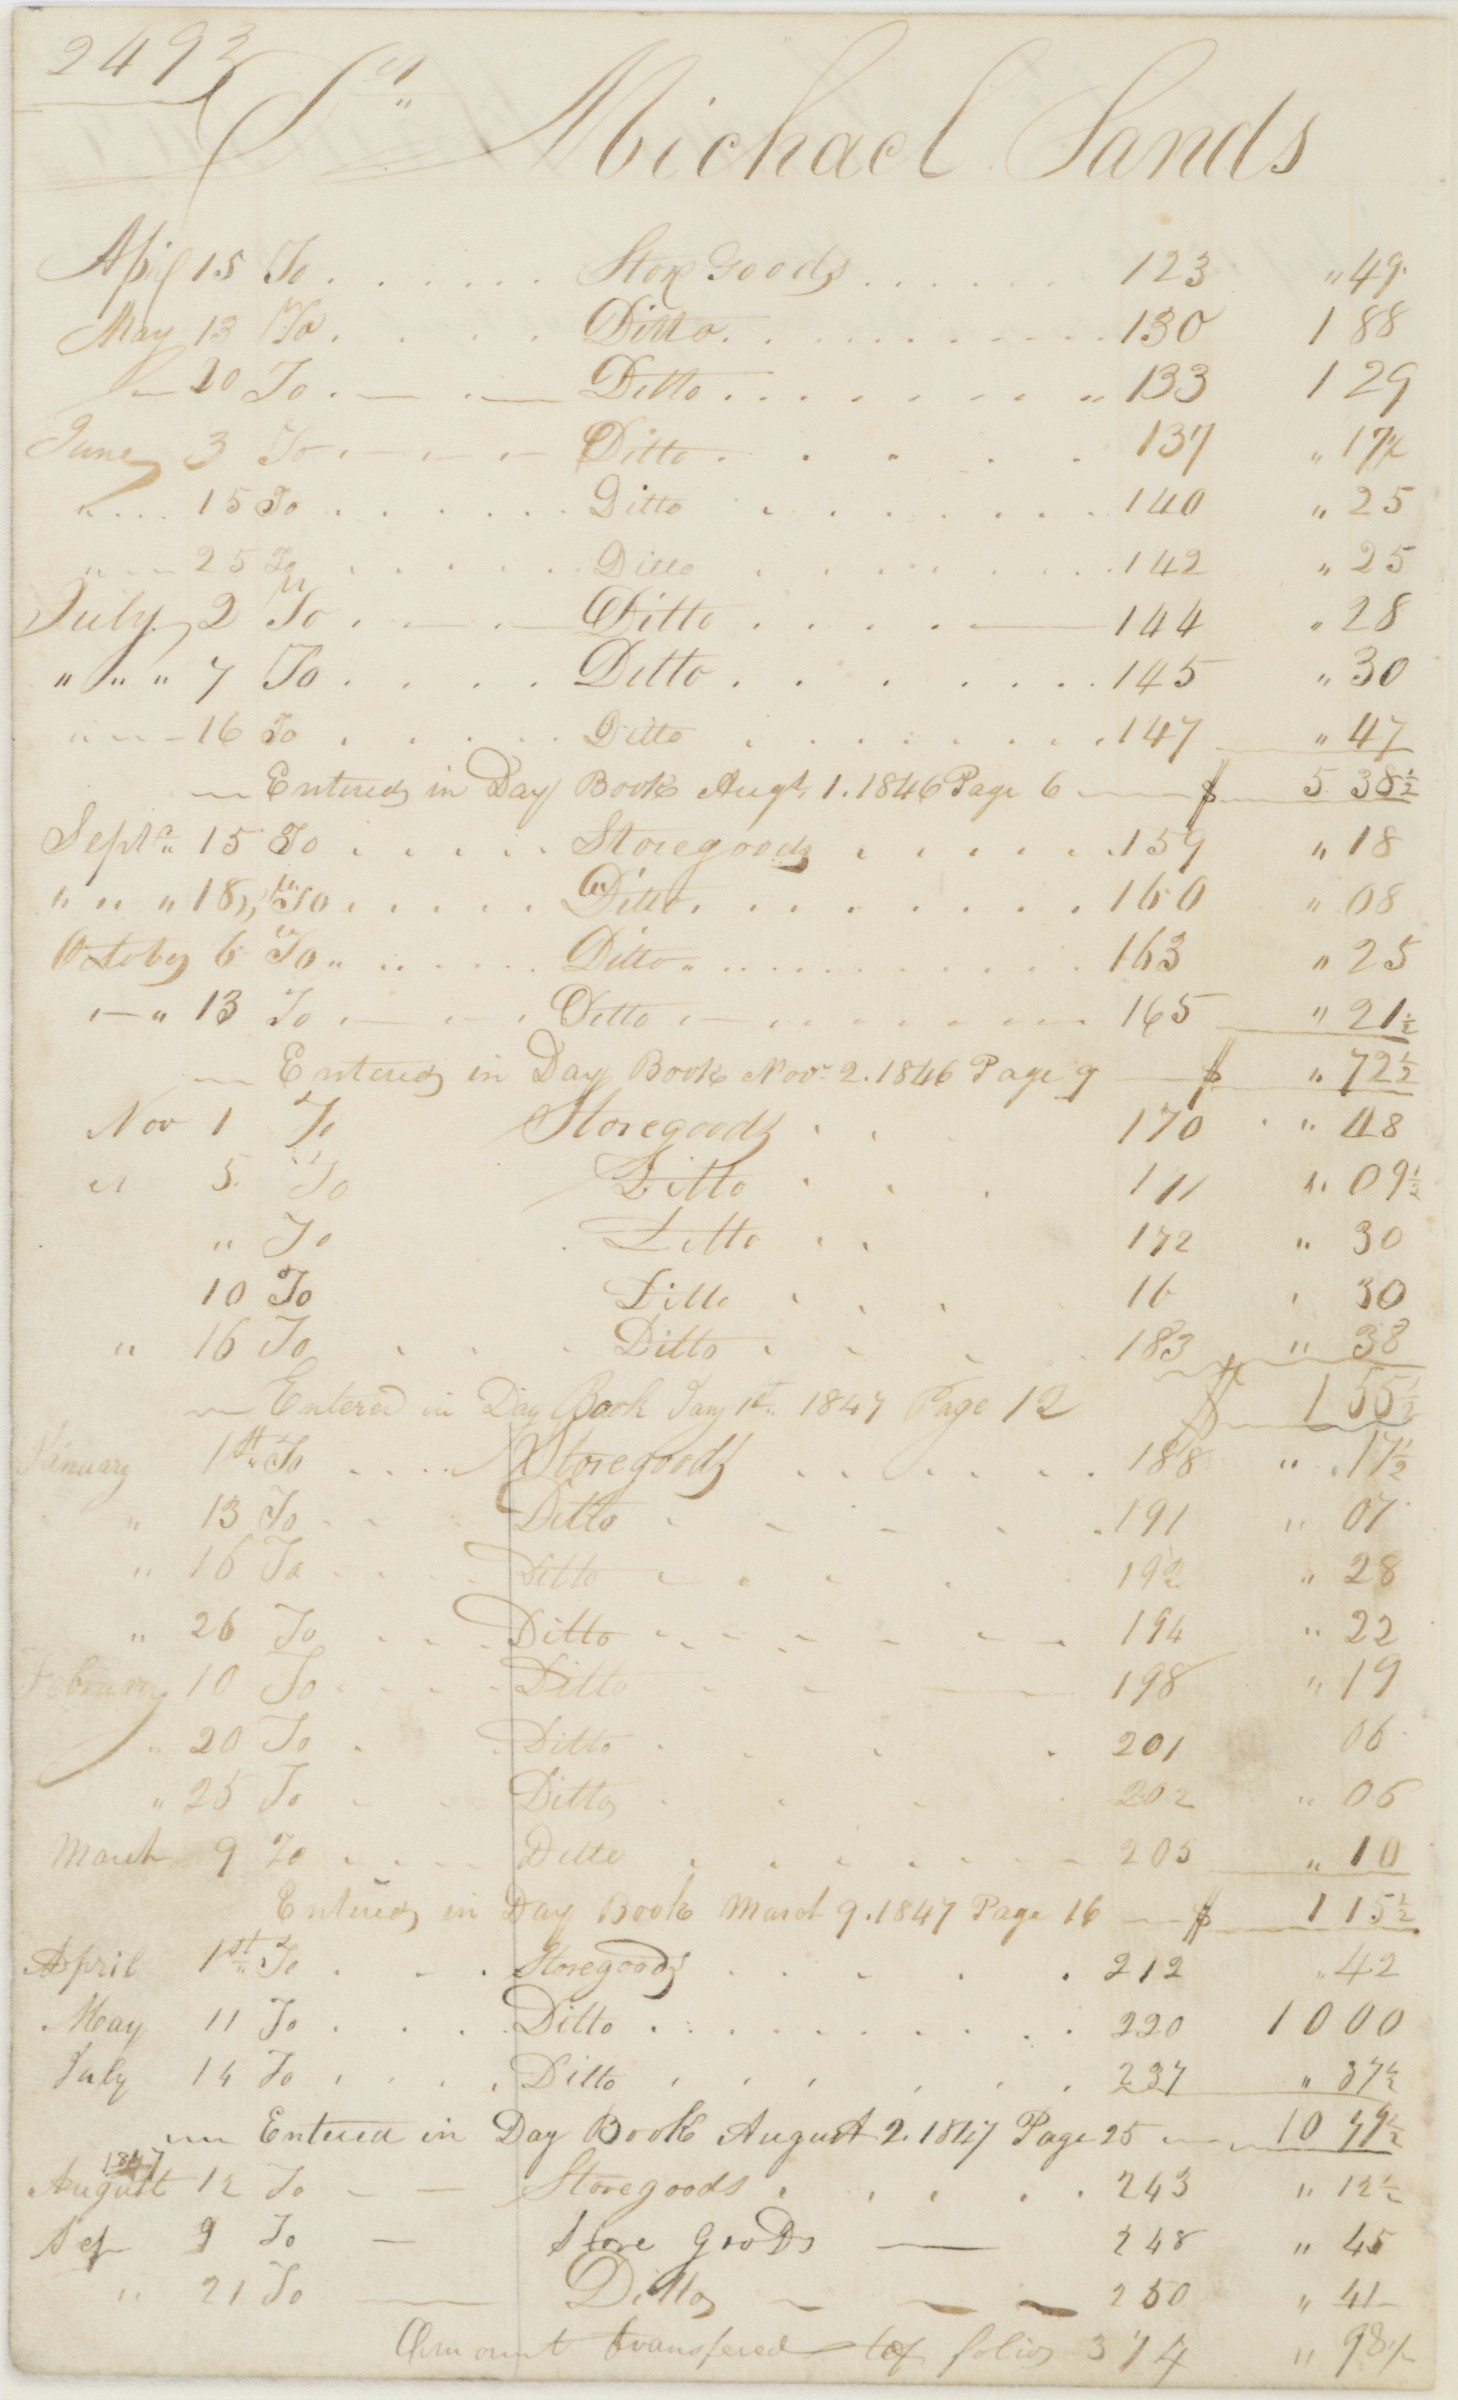 2493 Michael Sands
April 15 To Store Goods 123 " 49
May 13 To Ditto 130 1 88
20 To Ditto " 133 1 29
June 3 To Ditto 137 " 17½
" 15 To Ditto 140 " 25
" 25 To Ditto 142 " 25
July 2 To Ditto 144 " 28
" " " 7 To Ditto 145 " 30
" 16 To Ditto 147 " 47
Entered in Day Book Augt. 1. 1846 Page 6 $ 5 38½
Sept. 15 To Storegoods 159 " 18
" " " 18 " To Ditto 160 " 08
October 6 To " Ditto " 163 " 25
" 13 To Ditto 165 " 21½
Entered in Day Book Novr. 2. 1846 Page 9 $ " 72½
Nov 1 To Storegoods 170 " 48
" 5 To Ditto 171 " 09½
" To Ditto 172 " 30
10 To Ditto 30
" 16 To Ditto 183 " 38
Entered in Day Book Jany 1st. 1847 Page 12 $ 1 55½
January 1st To Storegoods 188 " 17½
" 13 To Ditto 191 " 07
" 16 To Ditto 192 " 28
" 26 To Ditto 194 " 22
February 10 To Ditto 198 " 19
" 20 To Ditto 201 06
" 25 To Ditto 202 " 06
March 9 To Ditto 205 " 10
Entered in Day Book March 9. 1847 Page 16 $ 1 15½
April 1st To Storegoods 212 " 42
May 11 To Ditto 220 10 00
July 14 To Ditto 237 " 37½
Entered in Day Book August 2. 1847 Page 25 10 79½
1847
August 12 To Storegoods 243 " 12½
Sep 9 To Store Goods 248 " 45
" 21 To Ditto 250 " 41
Amount transfered to folio 374 " 98½